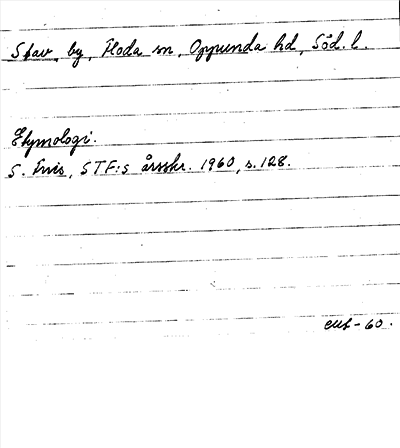 Stav, by, Floda sn, Oppunda hd, Söd. l.
Etymologi.
S. Fries, STF:s årsskr. 1960, s. 128.
-60.